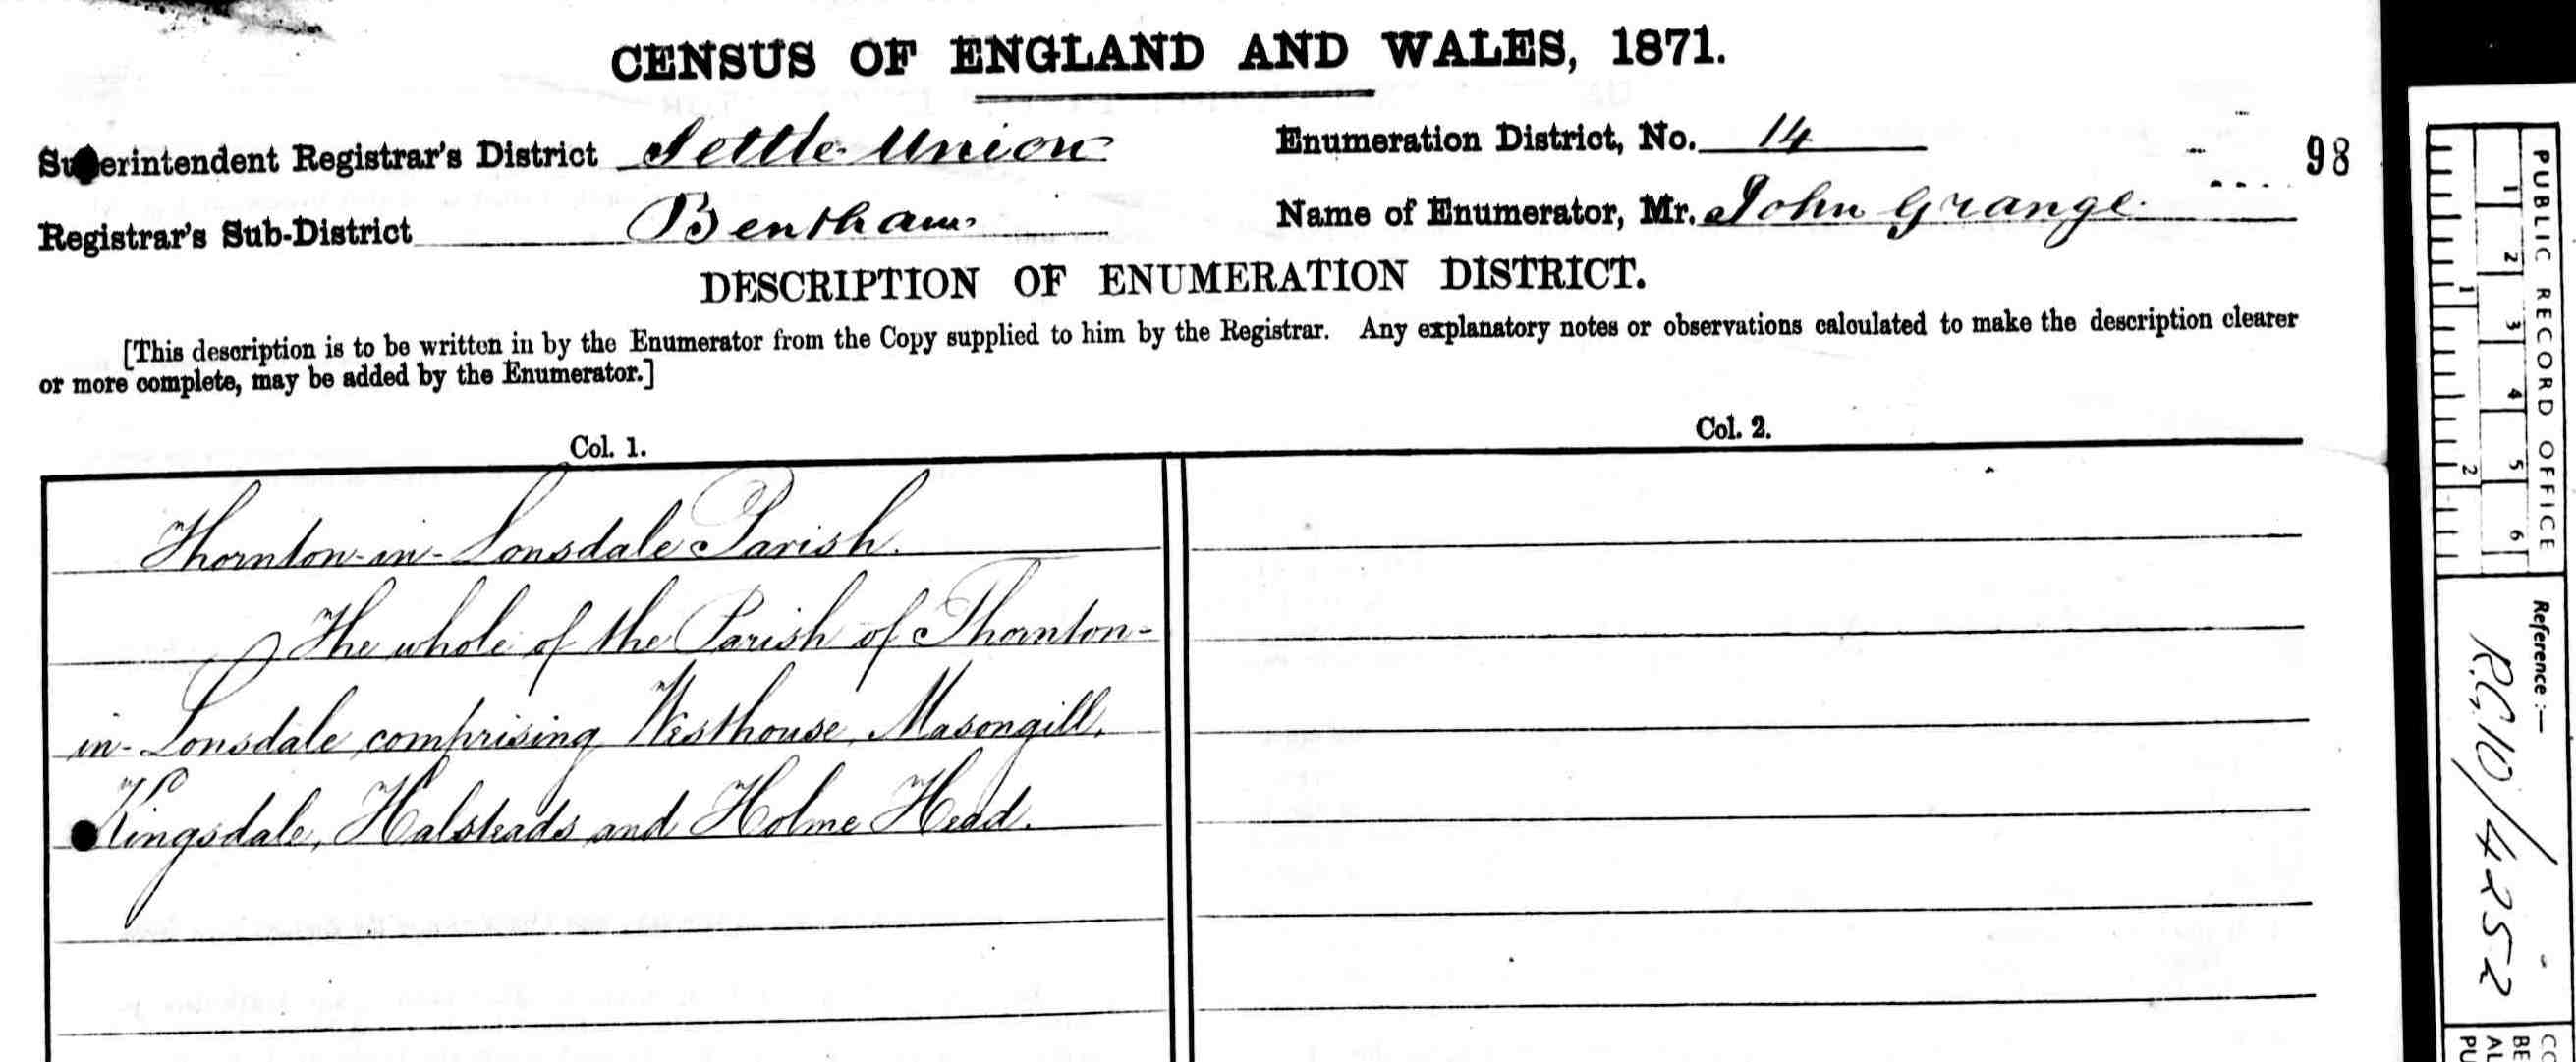 CENSUS OF ENGLAND AND WALES, 1871.
Superintendent Registrar's District Settle Union
Enumeration District, No. 14
98
Registrar's Sub-District Bentham
Name of Enumerator, Mr. John Grange
DESCRIPTION OF ENUMERATION DISTRICT.
[This description is to be written in by the Enumerator from the Copy supplied to him by the Registrar. Any explanatory notes or observations calculated to make the description clearer
or more complete, may be added by the Enumerator.]
Col. 1.
Col. 2.
Thornton-in-Lonsdale Parish.
The whole of the Parish of Thornton-
in-Lonsdale comprising Westhouse, Masongill,
Kingsdale, Halsteads and Holme Head.
PUBLIC RECORD OFFICE
1 2 3 4 5 6
1 2
Reference :-
R.G. 10/4252